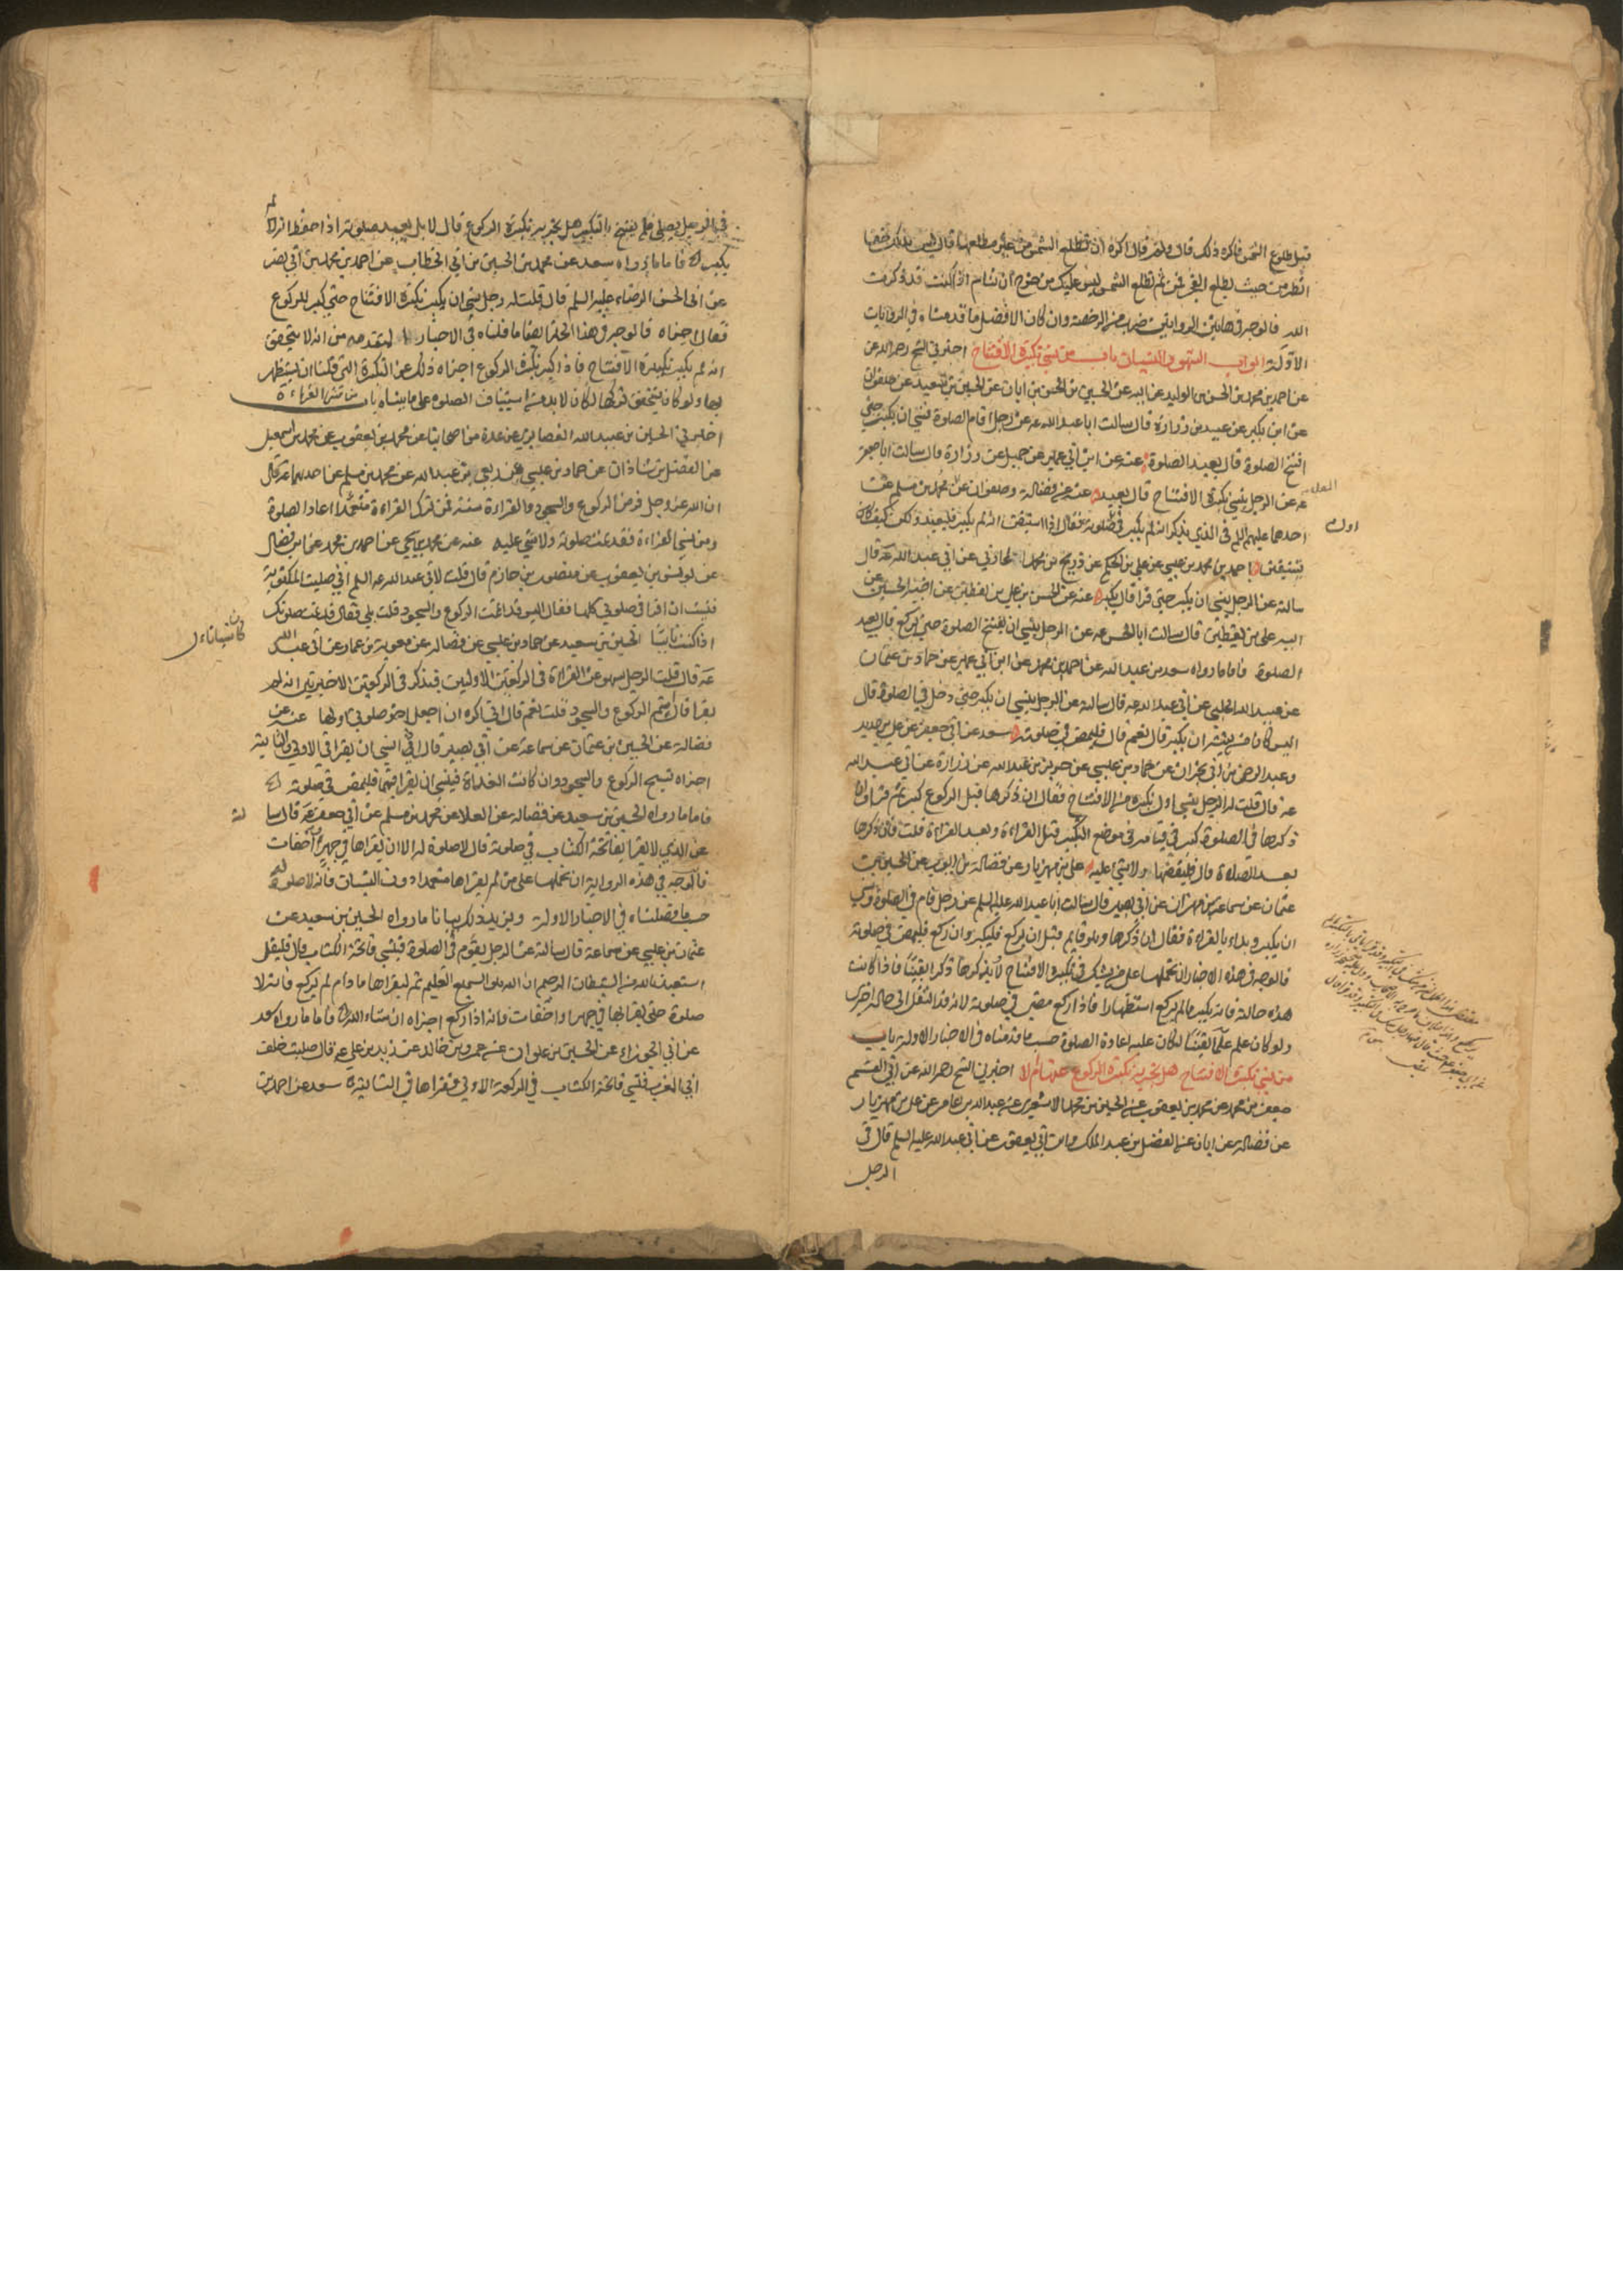 قبل طلوع الشمس فاكره ذلك قال ولم قال اكره ان تطلع الشمس من غير مطلعها قال ليس بذلك خفاء
انظر من حيث يطلع الفجر فمن ثم تطلع الشمس ليس عليك من حرج ان تنام اذا كنت قد ذكرت
الله فالوجه في هاتين الروايتين ضرب من الرخصة وان كان الافضل ما قدمناه في الروايات
الاولة ابواب السهو والنسيان باب من نسي تكبيرة الافتتاح اخبرني الشيخ رحمه الله عن
عن احمد بن محمد بن الحسن بن الوليد عن ابيه عن الحسين بن الحسن بن ابان عن الحسين بن سعيد عن صفوان
عن ابن بكير عن عبيد بن زرارة قال سالت ابا عبد الله عه عن رجل اقام الصلوة فنسي ان يكبر حتى
افتتح الصلوة قال يعيد الصلوة عنه عن ابن ابي عمير عن جميل عن زرارة قال سالت ابا جعفر
عه عن الرجل ينسي تكبيرة الافتتاح قال يعيد عنه عن فضالة وصفوان عن محمد بن مسلم عن
العلا
احدهما عليهم السلم في الذي يذكر انه لم يكبر في اول صلوته فقال اذا استيقن انه لم يكبر فليعيد ولكن كيف
يستيقن احمد بن محمد بن عيسى عن علي بن الحكم عن ذريح بن محمد المحاربي عن ابي عبد الله عه قال
سالته عن الرجل ينسي ان يكبر حتى قرا قال يكبر عنه عن الحسن بن علي بن يقطين عن اخيه الحسين عن
ابيه علي بن يقطين قال سالت ابا الحسن عه عن الرجل ينسي ان يفتتح الصلوة حتى يركع قال يعيد
الصلوة فاما ما رواه سعد بن عبد الله عن احمد بن محمد عن ابن ابي عمير عن حماد بن عثمان
عن عبيد الله الحلبي عن ابي عبد الله عه قال سالته عن الرجل ينسي ان يكبر حتى دخل في الصلوة قال
اليس كان من نيته ان يكبر قال نعم قال فليمض في صلوته سعد عن ابي جعفر عن علي بن حديد
وعبد الرحمن بن ابي نجران عن حماد بن عيسى عن حريز بن عبد الله عن زرارة عن ابي عبد الله
عه قال قلت له الرجل ينسي اول تكبيره من الافتتاح فقال ان ذكرها قبل الركوع كبر ثم قرا وان
ذكرها في الصلوة كبر في قيامه في موضع التكبير قبل القراءة وبعد القراءة قلت فان ذكرها
بعد الصلاة قال فليقضها ولا شي عليه علي بن مهزيار عن فضالة بن ايوب عن الحسين بن
عثمان عن سماعة بن مهران عن ابي بصير قال سالت ابا عبد الله عليه السلم عن رجل قام في الصلوة ونسي
ان يكبر وبداء بالقراءة فقال ان ذكرها وهو قايم قبل ان يركع فليكبر وان ركع فليمض في صلوته
فالوجه في هذه الاخبار ان نحملها على من يشك في تكبيرة الافتتاح لا يذكرها ذكرا يقينا فاذا كانت
هذه حالته فانه يكبر ما لم يركع استظهارا فاذا ركع مضى في صلوته لانه قد انتقل الى حالة اخرى
ولو كان علم علما يقينا لكان عليه اعادة الصلوة حسب ما قدمناه في الاخبار الاولة باب
من نسي تكبيرة الافتتاح هل تجزيه تكبيرة الركوع عنها ام لا اخبرني الشيخ رحمه الله عن ابي القسم
جعفر بن محمد عن محمد بن يعقوب عن الحسين بن محمد الاشعري عن عبد الله بن عامر عن علي بن مهزيار
عن فضالة عن ابان عن الفضل بن عبد الملك وابن ابي يعفور عن ابي عبد الله عليه السلم قال في
الرجل
في الرجل يصلي فلم يفتتح بالتكبير هل يجزيه تكبيرة الركوع قال لا بل يعيد صلوته اذا حفظ انه لم
يكبر فاما ما رواه سعد عن محمد بن الحسين بن ابي الخطاب عن احمد بن محمد بن ابي نصر
عن ابي الحسن الرضا عليه السلم قال قلت له رجل نسي ان يكبر تكبيرة الافتتاح حتى كبر للركوع
فقال اجزاه فالوجه في هذا الخبر ايضا ما قلناه في الاخبار المتقدمه من انه لا يتحقق
انه لم يكبر تكبيرة الافتتاح فاذا كبر تكبيرة الركوع اجزاه ذلك عن التكبيرة التي قلنا ان يستظهر
بها ولو كان يتحقق تركها لكان لا بد من استيناف الصلوة على ما بيناه باب من نسي القراءة
اخبرني الحسين بن عبيد الله الغضايري عن عدة من اصحابنا عن محمد بن يعقوب عن محمد بن اسمعيل
عن الفضل بن شاذان عن حماد بن عيسى عن ربعي بن عبد الله عن محمد بن مسلم عن احدهما عه قال
ان الله عز وجل فرض الركوع والسجود والقراءة سنة فمن ترك القراءة متعمدا اعاد الصلوة
ومن نسي القراءة فقد تمت صلوته ولا شي عليه عنه عن محمد بن يحيى عن احمد بن محمد عن ابن فضال
عن يونس بن يعقوب عن منصور بن حازم قال قلت لابي عبد الله عه السلم اني صليت المكتوبة
فنسيت ان اقرا في صلوتي كلها فقال اليس قد اتممت الركوع والسجود قلت بلى فقال قد تمت صلوتك
اذا كنت ناسيا الحسين بن سعيد عن حماد بن عيسى عن فضاله عن معوية بن عمار عن ابي عبد الله
عه قال قلت الرجل يسهو عن القراءة في الركعتين الاوليين فيذكر في الركعتين الاخيرتين انه لم
يقرا قال اتم الركوع والسجود قلت نعم قال اني اكره ان اجعل اخر صلوتي اولها عنه عن
فضالة عن الحسين بن عثمان عن سماعة عن ابي بصير قال ان نسي ان يقرا في الاولى والثانية
اجزاه تسبيح الركوع والسجود وان كانت الغداة فنسي ان يقرا فيها فليمض في صلوته
فاما ما رواه الحسين بن سعيد عن فضالة عن العلا عن محمد بن مسلم عن ابي جعفر عه قال سالته
عن الذي لا يقرا بفاتحة الكتاب في صلوته قال لا صلوة له الا ان يقراها في جهر او اخفات
فالوجه في هذه الرواية ان نحملها على من لم يقراها متعمدا دون النسيان فانه لا صلوة له
حسب ما فصلناه في الاخبار الاولة ويزيد ذلك بيانا ما رواه الحسين بن سعيد عن
عثمان بن عيسى عن سماعة قال سالته عن الرجل يقوم في الصلوة فينسي فاتحة الكتاب قال فليقل
استعيذ بالله من الشيطان الرجيم ان الله هو السميع العليم ثم ليقراها ما دام لم يركع فانه لا
صلوة حتى يقرا بها في جهر او اخفات فانه اذا ركع اجزاه ان شاء الله فاما ما رواه سعد
عن ابي الجوزاء عن الحسين بن علوان عن عمرو بن خالد عن زيد بن علي عه قال صليت خلف
ابي المغرب فنسي فاتحة الكتاب في الركعة الاولى فقراها في الثانية سعد عن احمد بن